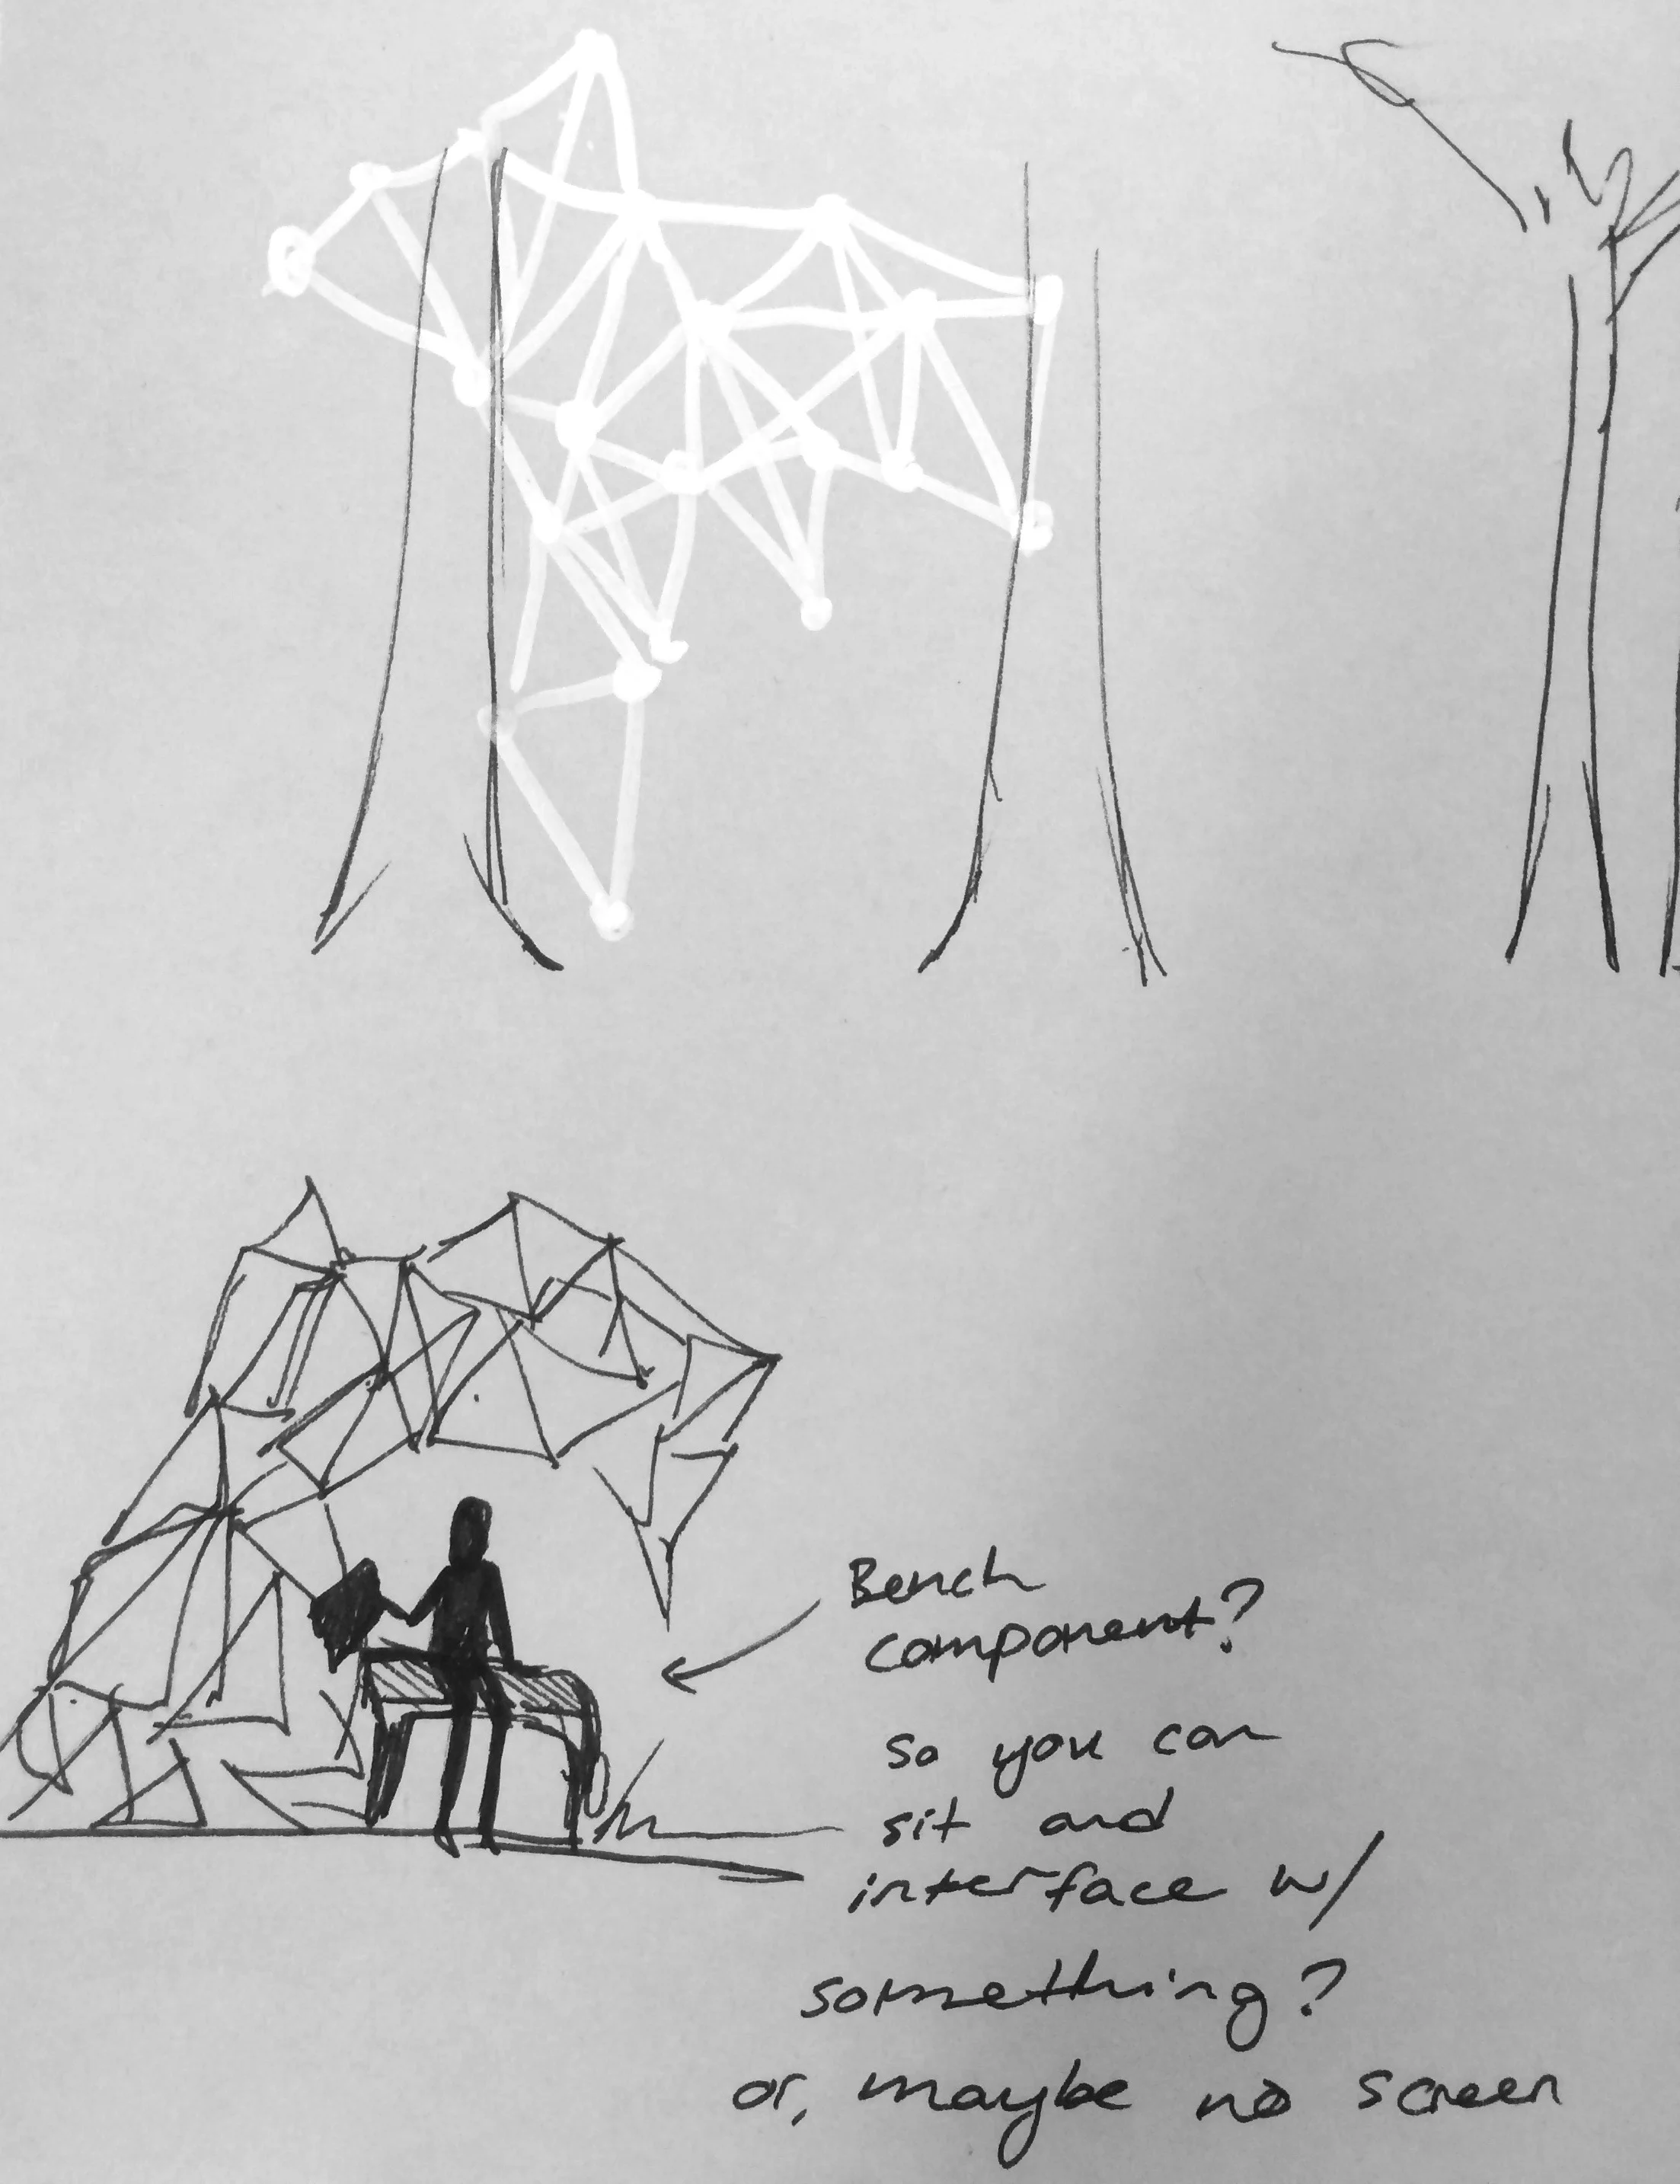 Bench
component?
so you can
sit and
interface w/
something?
or, maybe no screen